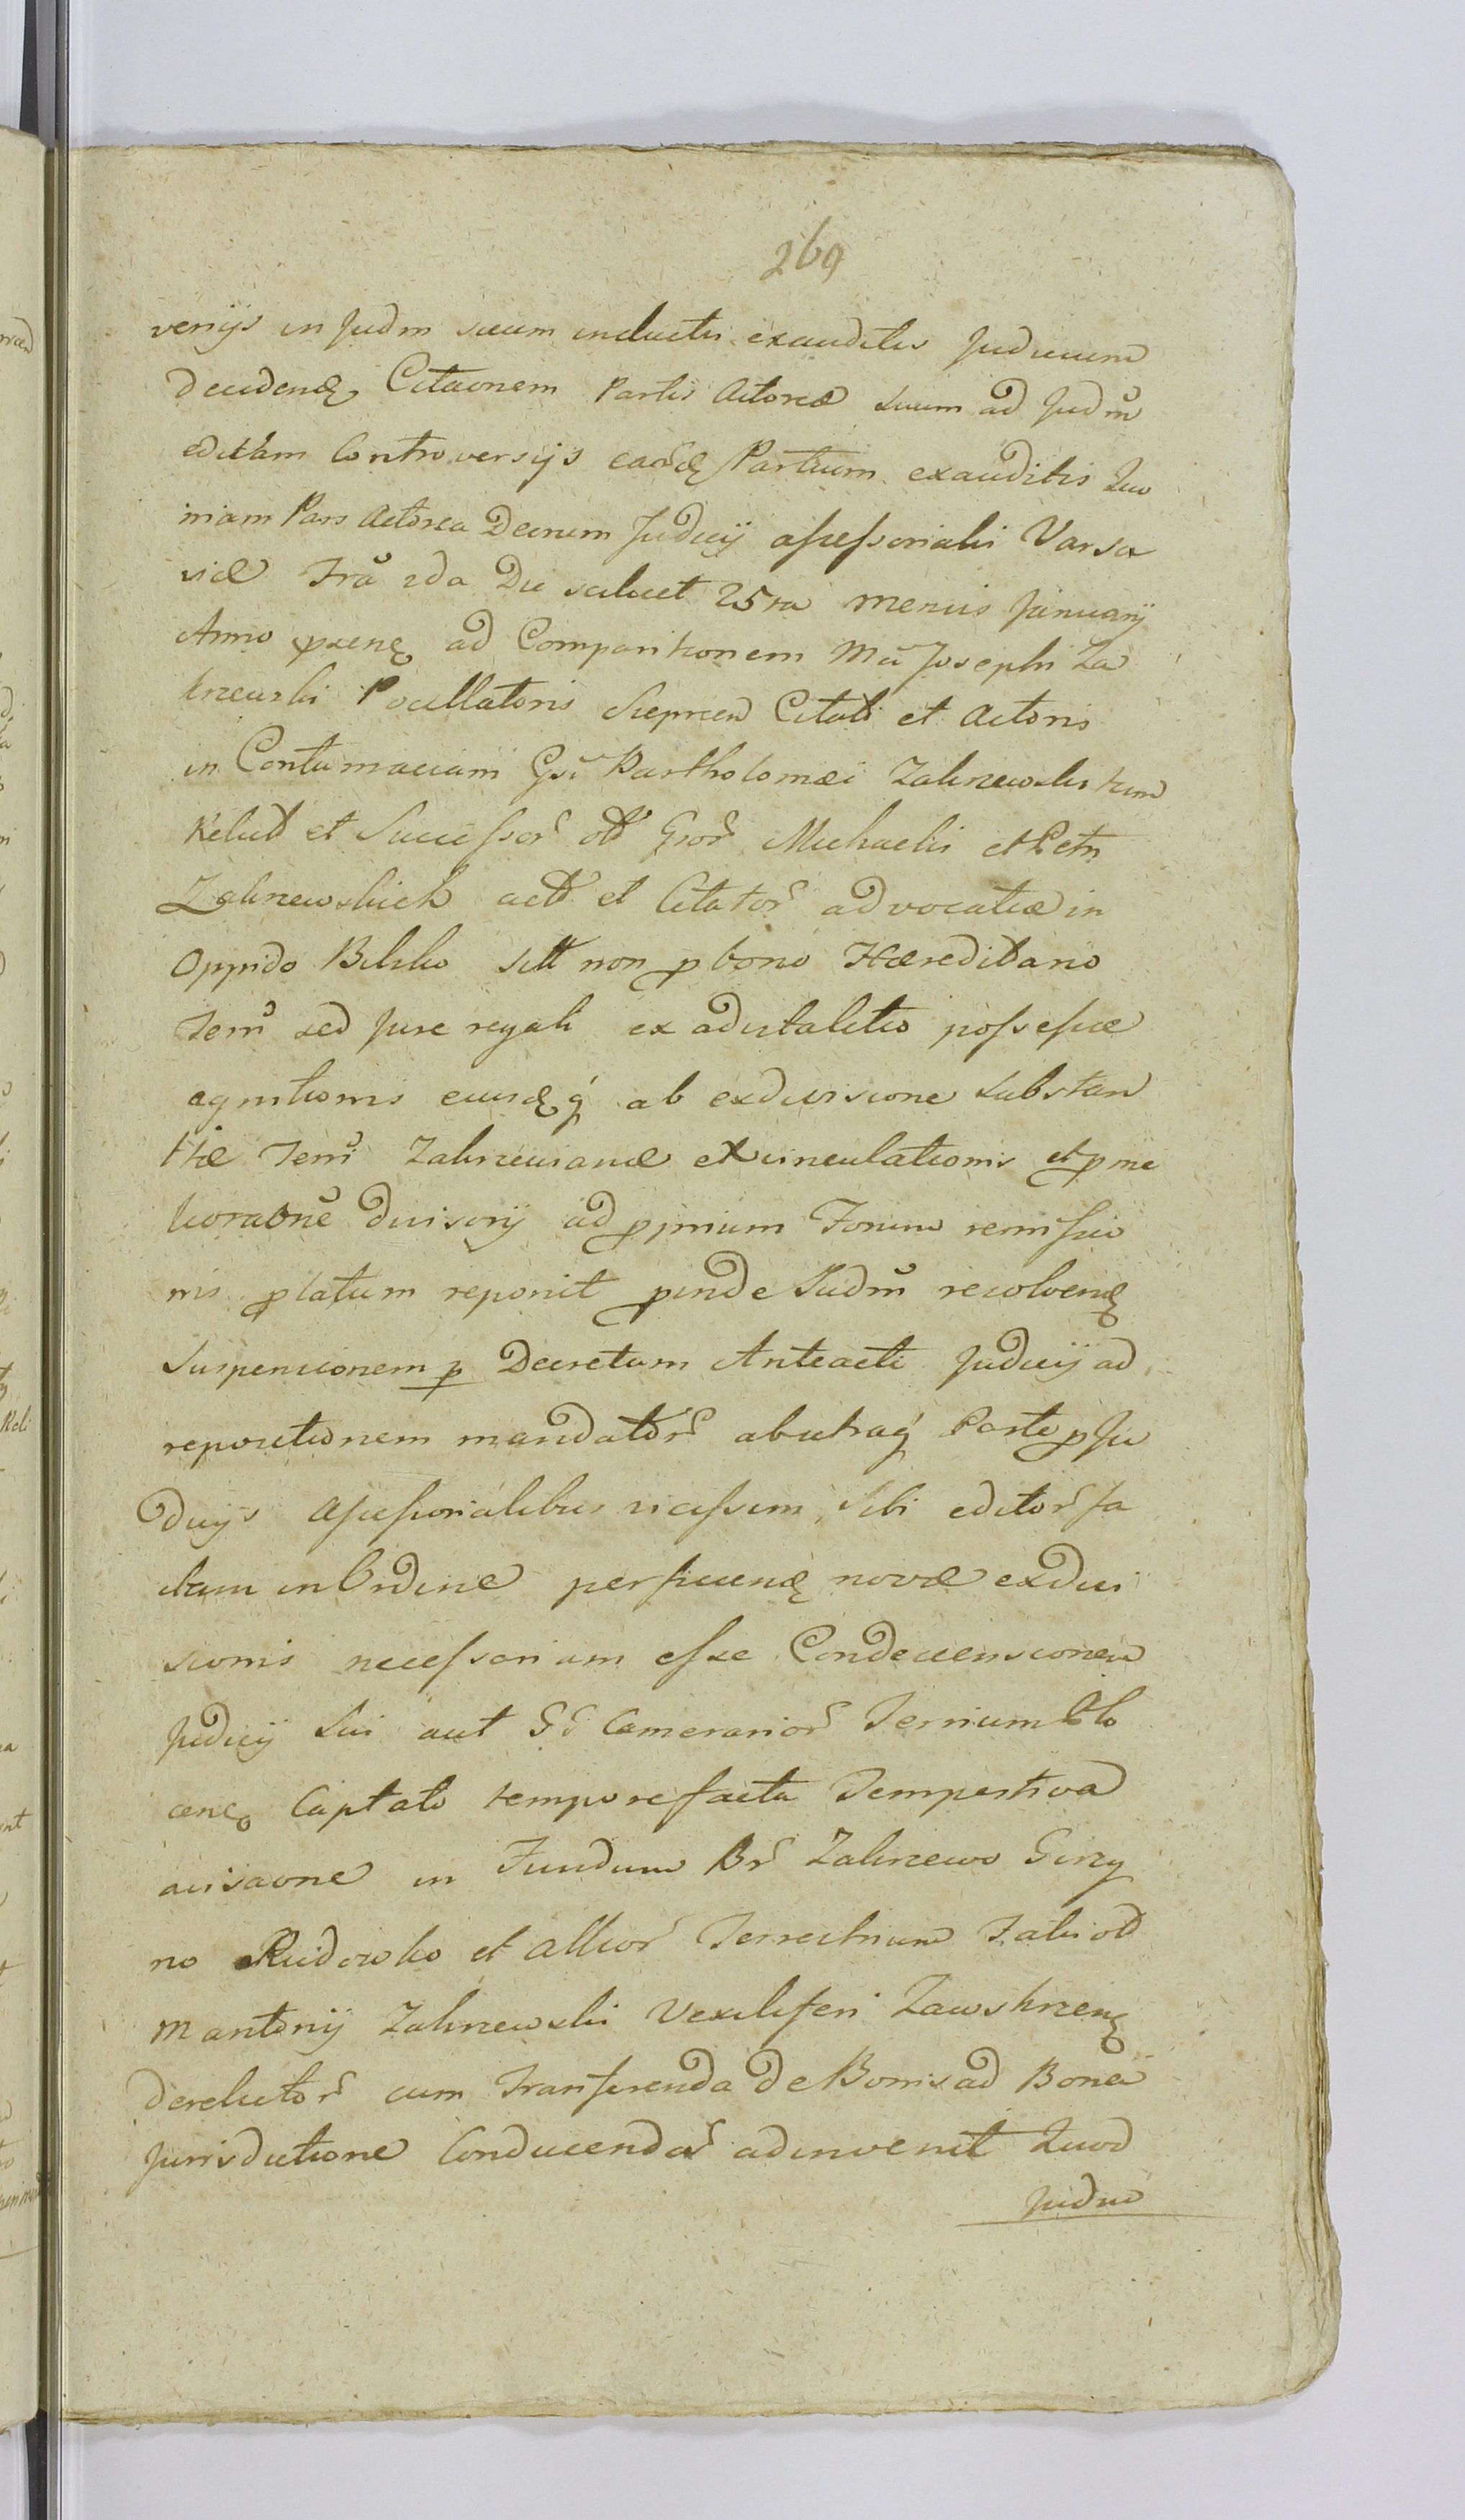 269
versijs in Judm suum inductis exauditis Judicium
decidenę Citaonem Partis Actoreæ suum ad Judm̃
editam Controversijs earũdę Partium exauditis Quo
niam Pars Actorea Decrum Judicij assessorialis Varsa
viæ Frã 2da Die scilicet 25ta mensis January
Anno pxenę ad Comparitionem Mci Josephi Za
krzewski Pocillatoris Citati et Actoris
in Contumaciam Gsi Bartholomæi Zakrzewski tum
Relict et Successor olt Gror Michaelis et Petri
Zakrzewskich act et Citator advocatiæ in
Oppido Bilsko sitt non p bono Hæreditario
Terrĩ sed Jure regali ex advitalitio possessæ
agnitionis eiusdę q́ ab exdivisione substan
tiæ Terrĩ Zakrzewianæ exvinculationis et p me
lioraõne divisorij ad ppnium Forum remissio
nis platum reponit pinde Judm̃ resolvenę
suspensionem p Decretum Anteacti Judicij ad
repositionem mandator̃ ab utraq́ Parte p Ju
dicijs Assessorialibus vicissim sibi editor fa
ctam in Ordine perficienę novæ exdivi
sionis necessariam esse Condescensionem
Judicij sui aut GG Camerarior̃ Terrium
cenę Captato tempore facta Tempestiva
avisaone in Fundum Br̃ Zakrzewo Girzy
no Rudowko et allior̃ Terrestrium Fati olt
M antonij Zakrzewski Vexiliferi Zawskrzenę
derelictor̃ cum Transferenda de Bonis ad Bona
Jurisdictione Conducendar̃ adinvenit Quod
Judm